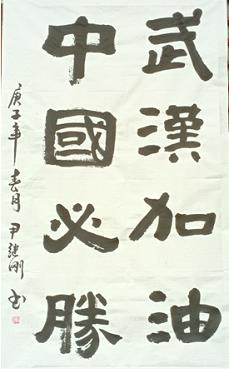 武漢加油
中國必勝
庚子年春月尹繼剛書